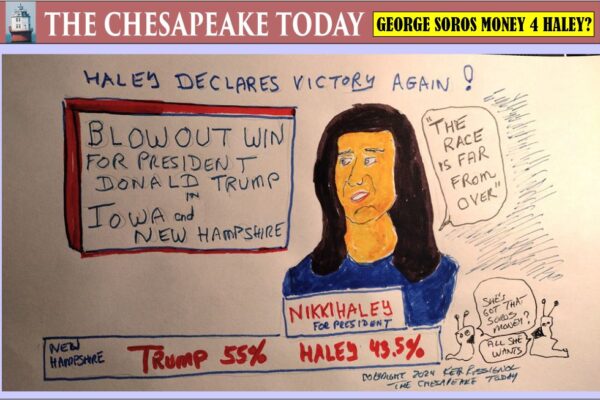 THE CHESAPEAKE TODAY
GEORGE SOROS MONEY 4 HALEY?
HALEY DECLARES VICTORY AGAIN!
BLOWOUT WIN
FOR PRESIDENT
DONALD TRUMP
IN
IOWA and
NEW HAMPSHIRE
"THE
RACE
IS FAR
FROM
OVER"
NIKKI HALEY
FOR PRESIDENT
SHE'S
GOT THAT
SOROS
MONEY?
ALL SHE
WANTS
NEW
HAMPSHIRE
TRUMP 55% HALEY 43.5%
COPYRIGHT 2024 KEN ROSSIGNOL
THE CHESAPEAKE TODAY